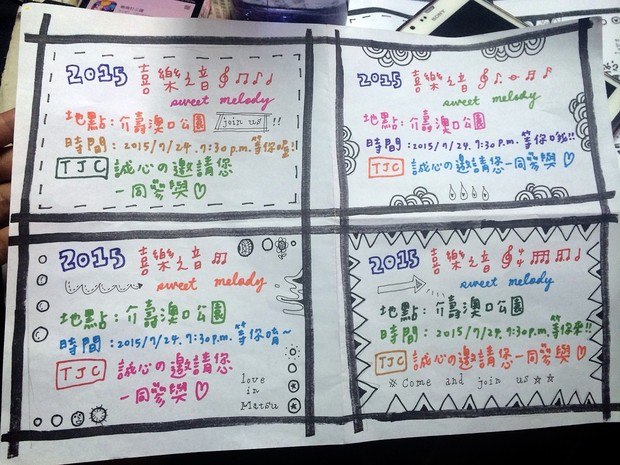 2015 喜樂之音
sweet melody
地點：介壽澳口公園 join us !!
時間：2015/7/24. 7:30 p.m. 等你喔!!
TJC 誠心の邀請您
一同參與
2015 喜樂之音
sweet melody
地點：介壽澳口公園
時間：2015/7/24. 7:30 p.m. 等你哦!!
TJC 誠心の邀請您一同參與
2015 喜樂之音
sweet melody
地點：介壽澳口公園
時間：2015/7/24. 7:30 p.m. 等你唷～
TJC 誠心の邀請您
一同參與
love
in
Matsu
2015 喜樂之音
sweet melody
地點：介壽澳口公園
時間：2015/7/24. 7:30 p.m. 等你來!!
TJC 誠心の邀請您一同參與
※ Come and join us